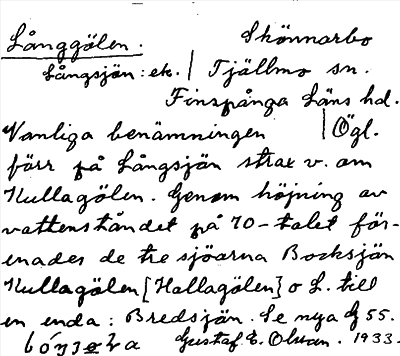 Långgölen. Skönnarbo
Långsjön: ek. | Tjällmo sn.
Finspånga Läns hd.
Vanliga benämningen | Ögl.
förr på Långsjön strax v. om
Kullagölen. Genom höjning av
vattenståndet på 70-talet för-
enades de tre sjöarna Bocksjön
Kullagölen [Hallagölen] o L. till
en enda: Bredsjön. Se nya G 55.
Gustaf E. Olsson. 1933.